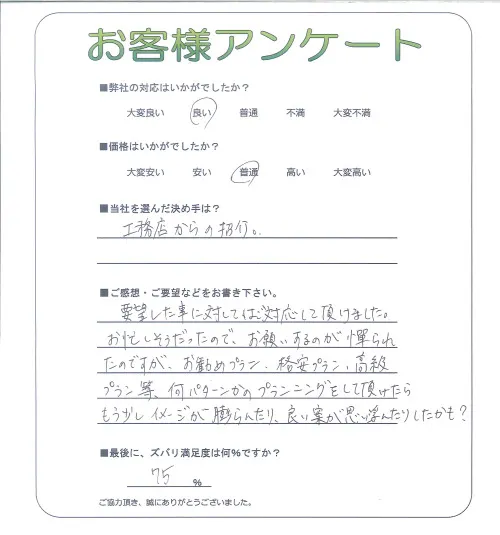 お客様アンケート
■弊社の対応はいかがでしたか？
大変良い 良い 普通 不満 大変不満
■価格はいかがでしたか？
大変安い 安い 普通 高い 大変高い
■当社を選んだ決め手は？
工務店からの紹介。
■ご感想・ご要望などをお書き下さい。
要望した事に対してはご対応して頂けました。
お忙しそうだったので、お願いするのが憚られ
たのですが、お勧めプラン、格安プラン、高級
プラン等、何パターンかのプランニングをして頂けたら
もう少しイメージが膨らんだり、良い案が思い浮んだりしたかも？
■最後に、ズバリ満足度は何％ですか？
75 ％
ご協力頂き、誠にありがとうございました。